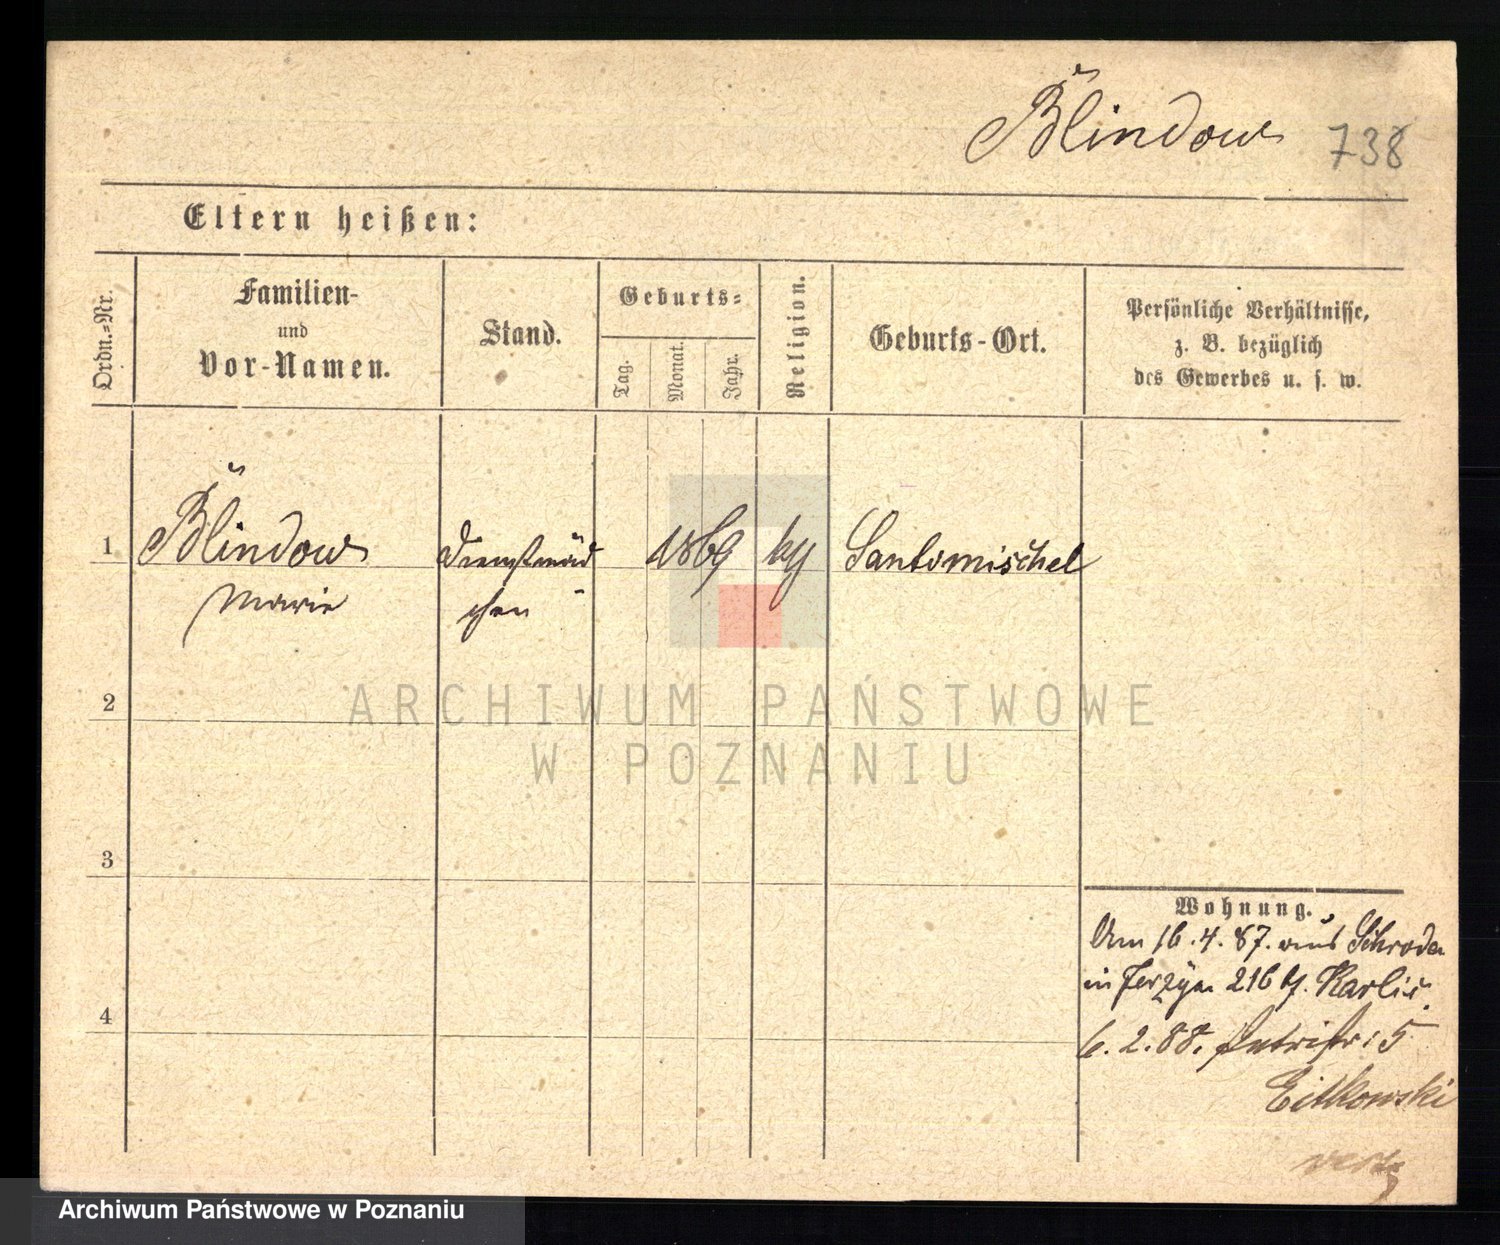 Blindow 738
Eltern heißen:
Ordn.-Nr.
Familien-
und
Vor-Namen.
Stand.
Geburts-
Tag.
Monat.
Jahr.
Religion.
Geburts-Ort.
Persönliche Verhältnisse,
z. B. bezüglich
des Gewerbes u. s. w.
1 Blindow Dienstmäd 1869 Santomischel
Marie chen
2
3
4
Wohnung.
Am 16.4.87. aus Schroda
in Jerzyce 216 b/.
6.2.88. Petristr: 5
ARCHIWUM PAŃSTWOWE
W POZNANIU
Archiwum Państwowe w Poznaniu